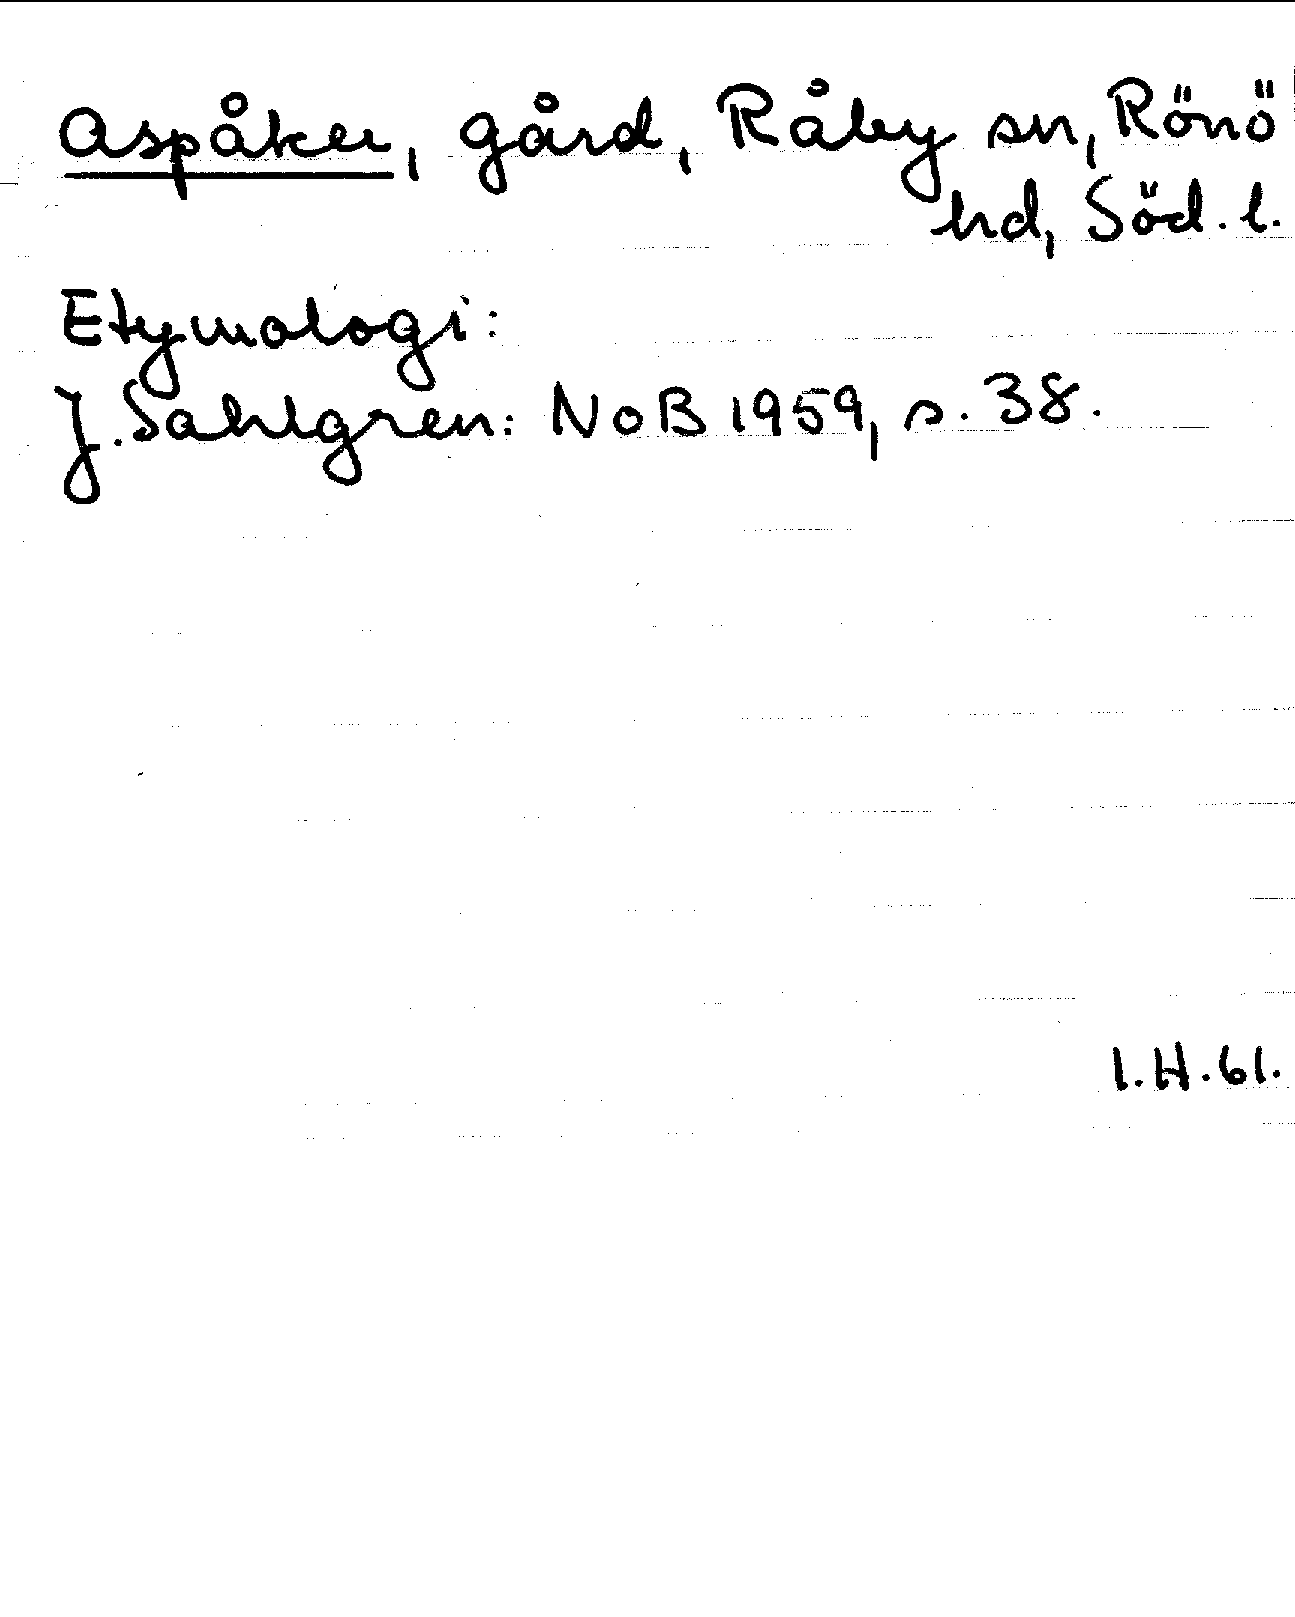 Aspåker, gård, Råby sn, Rönö
hd, Söd. l.
Etymologi:
J. Sahlgren: NoB 1959, s. 38.
I.H. 61.